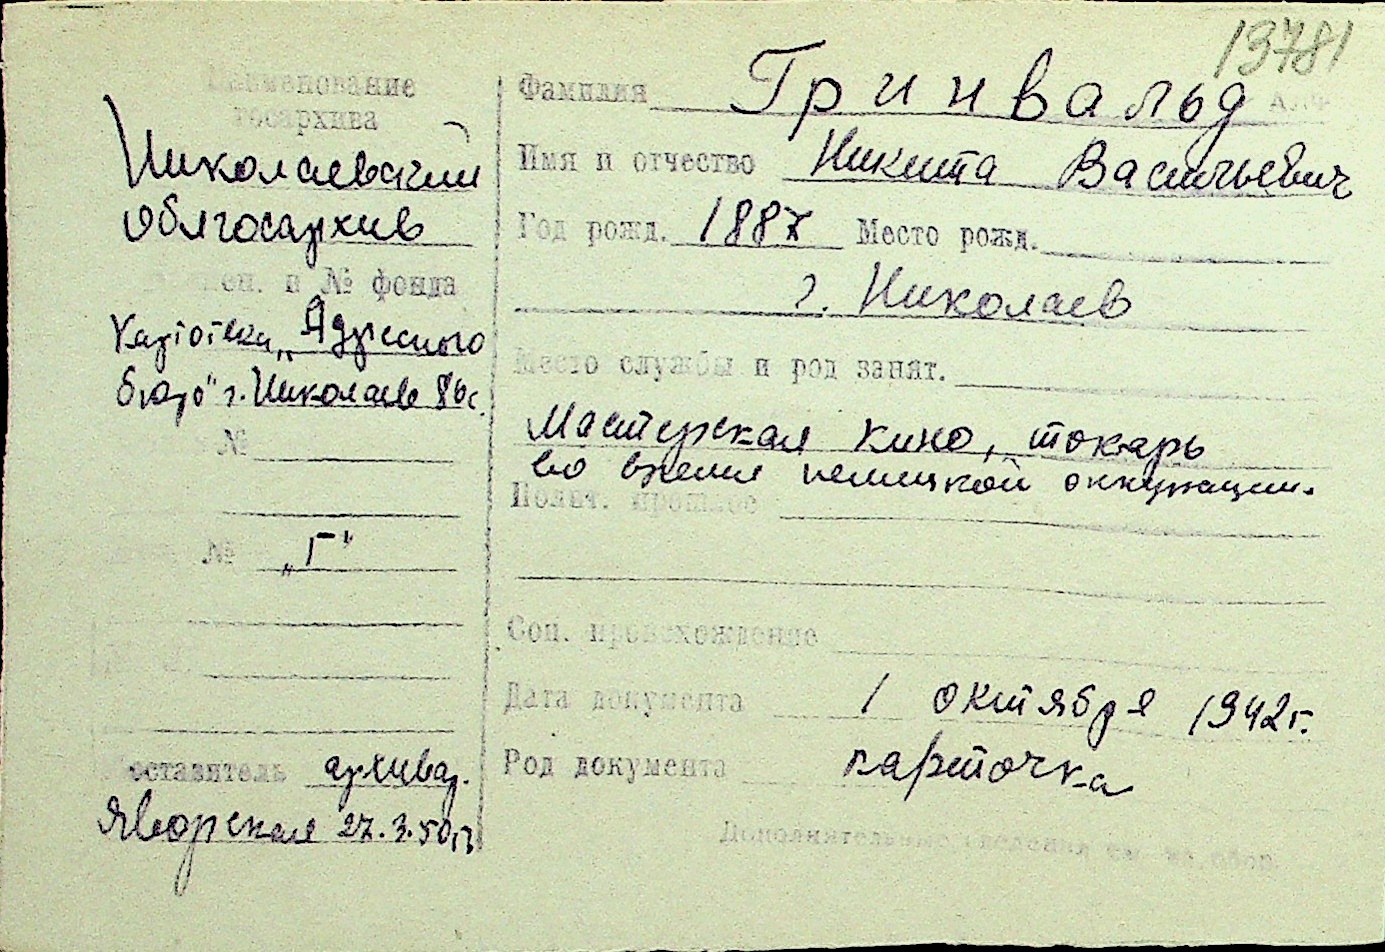 13781
Наименование
госархива
Николаевский
облгосархив
и № фонда
Картотека „Адресного
бюро" г. Николаев
№
№ „Г"
Составитель архивар.
Яворская 27.3.50г.
Фамилия Гринвальд
Имя и отчество Никита Васильевич
Год рожд. 1887 Место рожд.
г. Николаев
Место службы и род занят.
Мастерская кино, токарь
во время немецкой оккупации.
Полит. прошлое
Соц. происхождение
Дата документа 1 октября 1942г.
Род документа карточка
Дополнительные сведения см. на обор.